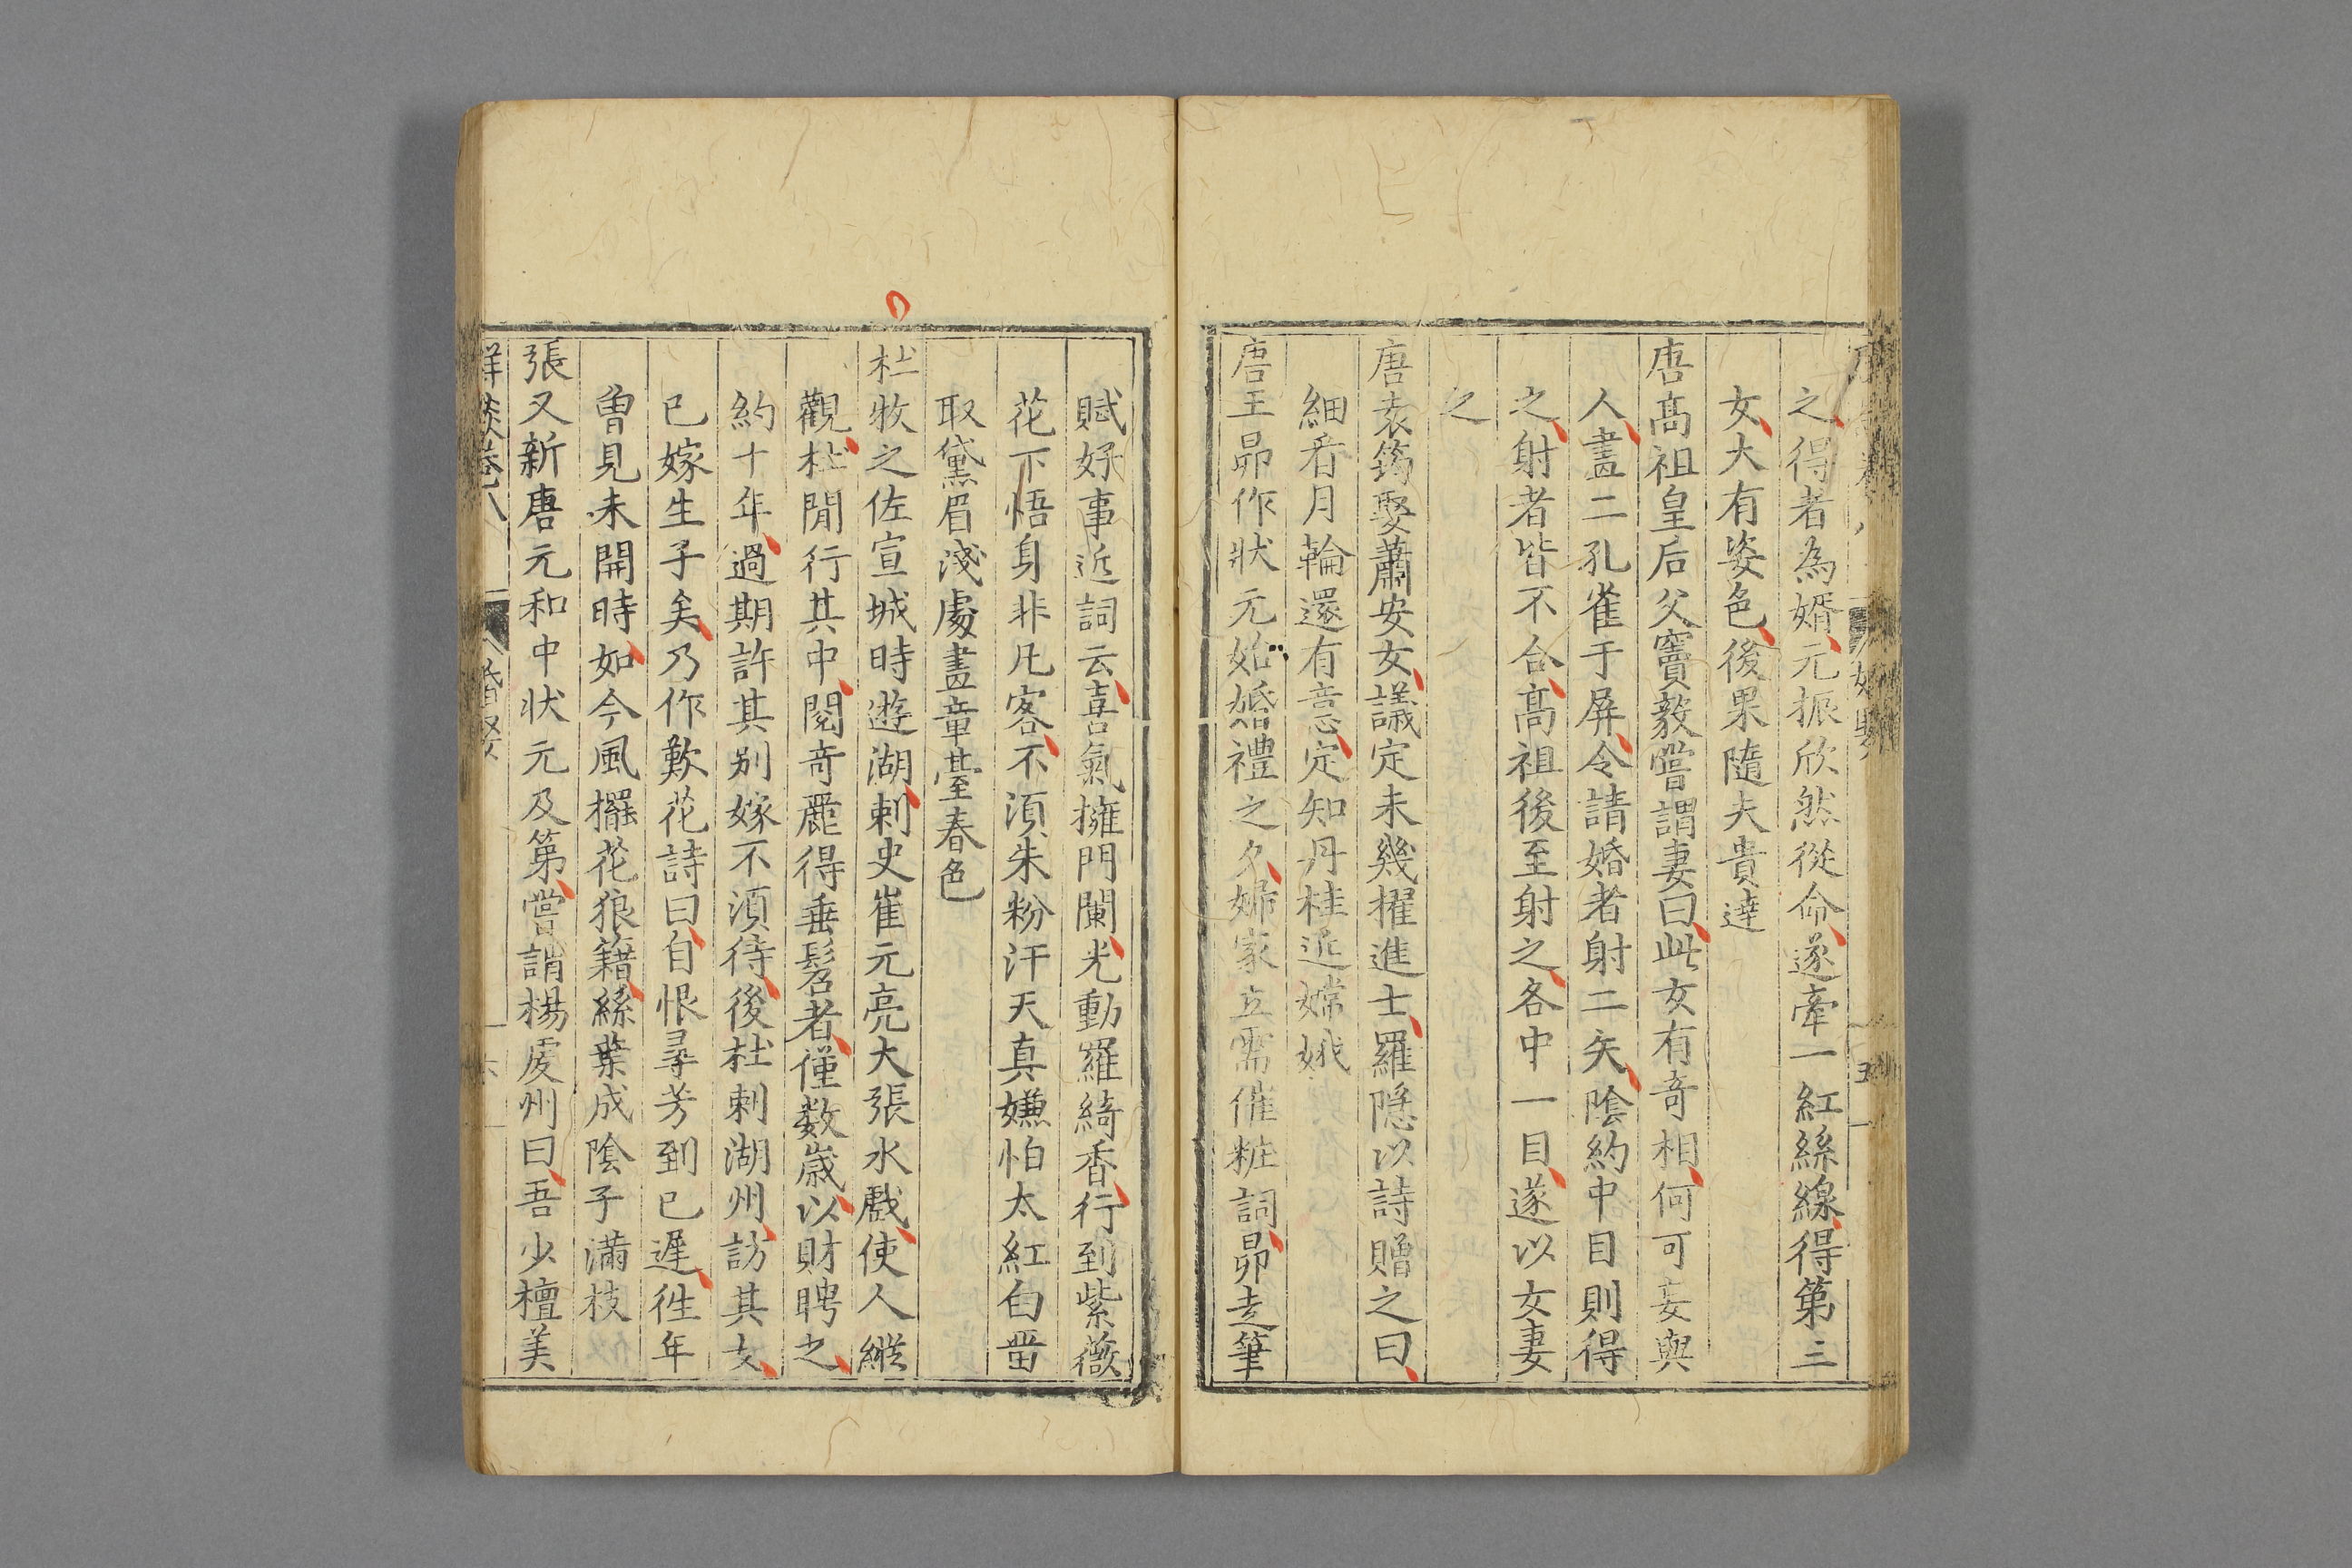 之得者為婿元振欣然從命遂牽一紅絲線得第三
女大有姿色後果隨夫貴達
唐高祖皇后父竇毅嘗謂妻曰此女有奇相何可妄與
人畫二孔雀于屏令請婚者射二矢陰約中目則得
之射者皆不合高祖後至射之各中一目遂以女妻
之
唐袁筠娶蕭安女議定未幾擢進士羅隱以詩贈之曰
細看月輪還有意定知丹桂近嫦娥
唐王昴作狀元始婚禮之夕婦家立需催粧詞昴走筆
賦好事近詞云喜氣擁門闌光動羅綺香行到紫薇
花下悟身非凡客不須朱粉汙天真嫌怕太紅白留
取黛眉淺處畫章臺春色
杜牧之佐宣城時遊湖刺史崔元亮大張水戲使人縱
觀杜閒行其中閱奇麗得垂髫者僅数歲以財聘之
約十年過期許其别嫁不湏待後杜刺湖州訪其女
已嫁生子矣乃作歎花詩曰自恨尋芳到已遲徃年
曾見未開時如今風擺花狼籍綠葉成陰子滿枝
張又新唐元和中状元及第嘗謂楊虔州曰吾少檀美
卷八
婚娶